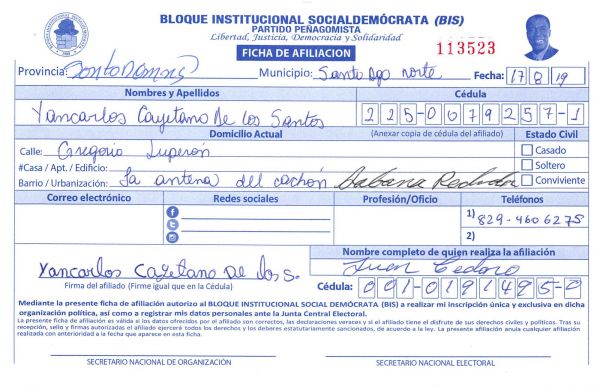 BLOQUE INSTITUCIONAL SOCIALDEMÓCRATA (BIS)
PARTIDO PEÑAGOMISTA
Libertad, Justicia, Democracia y Solidaridad
FICHA DE AFILIACION
113523
Provincia: Santo Domingo Municipio: Santo Dgo norte Fecha: 17/8/19
Nombres y Apellidos Cédula
Yancarlos Cayetano De los Santos 225-0079257-1
Domicilio Actual (Anexar copia de cédula del afiliado) Estado Civil
Calle: Gregorio Luperón Casado
#Casa / Apt. / Edificio: Soltero
Barrio / Urbanización: La antena del cachón Sabana Perdida Conviviente
Correo electrónico Redes sociales Profesión/Oficio Teléfonos
1) 829-460 6275
2)
Nombre completo de quien realiza la afiliación
Yancarlos Cayetano De los S. Juan Cedano
Firma del afiliado (Firme igual que en la Cédula) Cédula: 001-0191495-0
Mediante la presente ficha de afiliación autorizo al BLOQUE INSTITUCIONAL SOCIAL DEMÓCRATA (BIS) a realizar mi inscripción única y exclusiva en dicha
organización política, así como a registrar mis datos personales ante la Junta Central Electoral.
La presente ficha de afiliación es válida si los datos ofrecidos por el afiliado son correctos, las declaraciones veraces y si el afiliado tiene el disfrute de sus derechos civiles y políticos. Tras su
recepción, sello y firmas autorizadas el afiliado ejercerá todos los derechos y los deberes estatutariamente sancionados, de acuerdo a la ley. La presente afiliación anula cualquier afiliación
realizada con anterioridad a la fecha que aparece en esta ficha.
SECRETARIO NACIONAL DE ORGANIZACIÓN SECRETARIO NACIONAL ELECTORAL